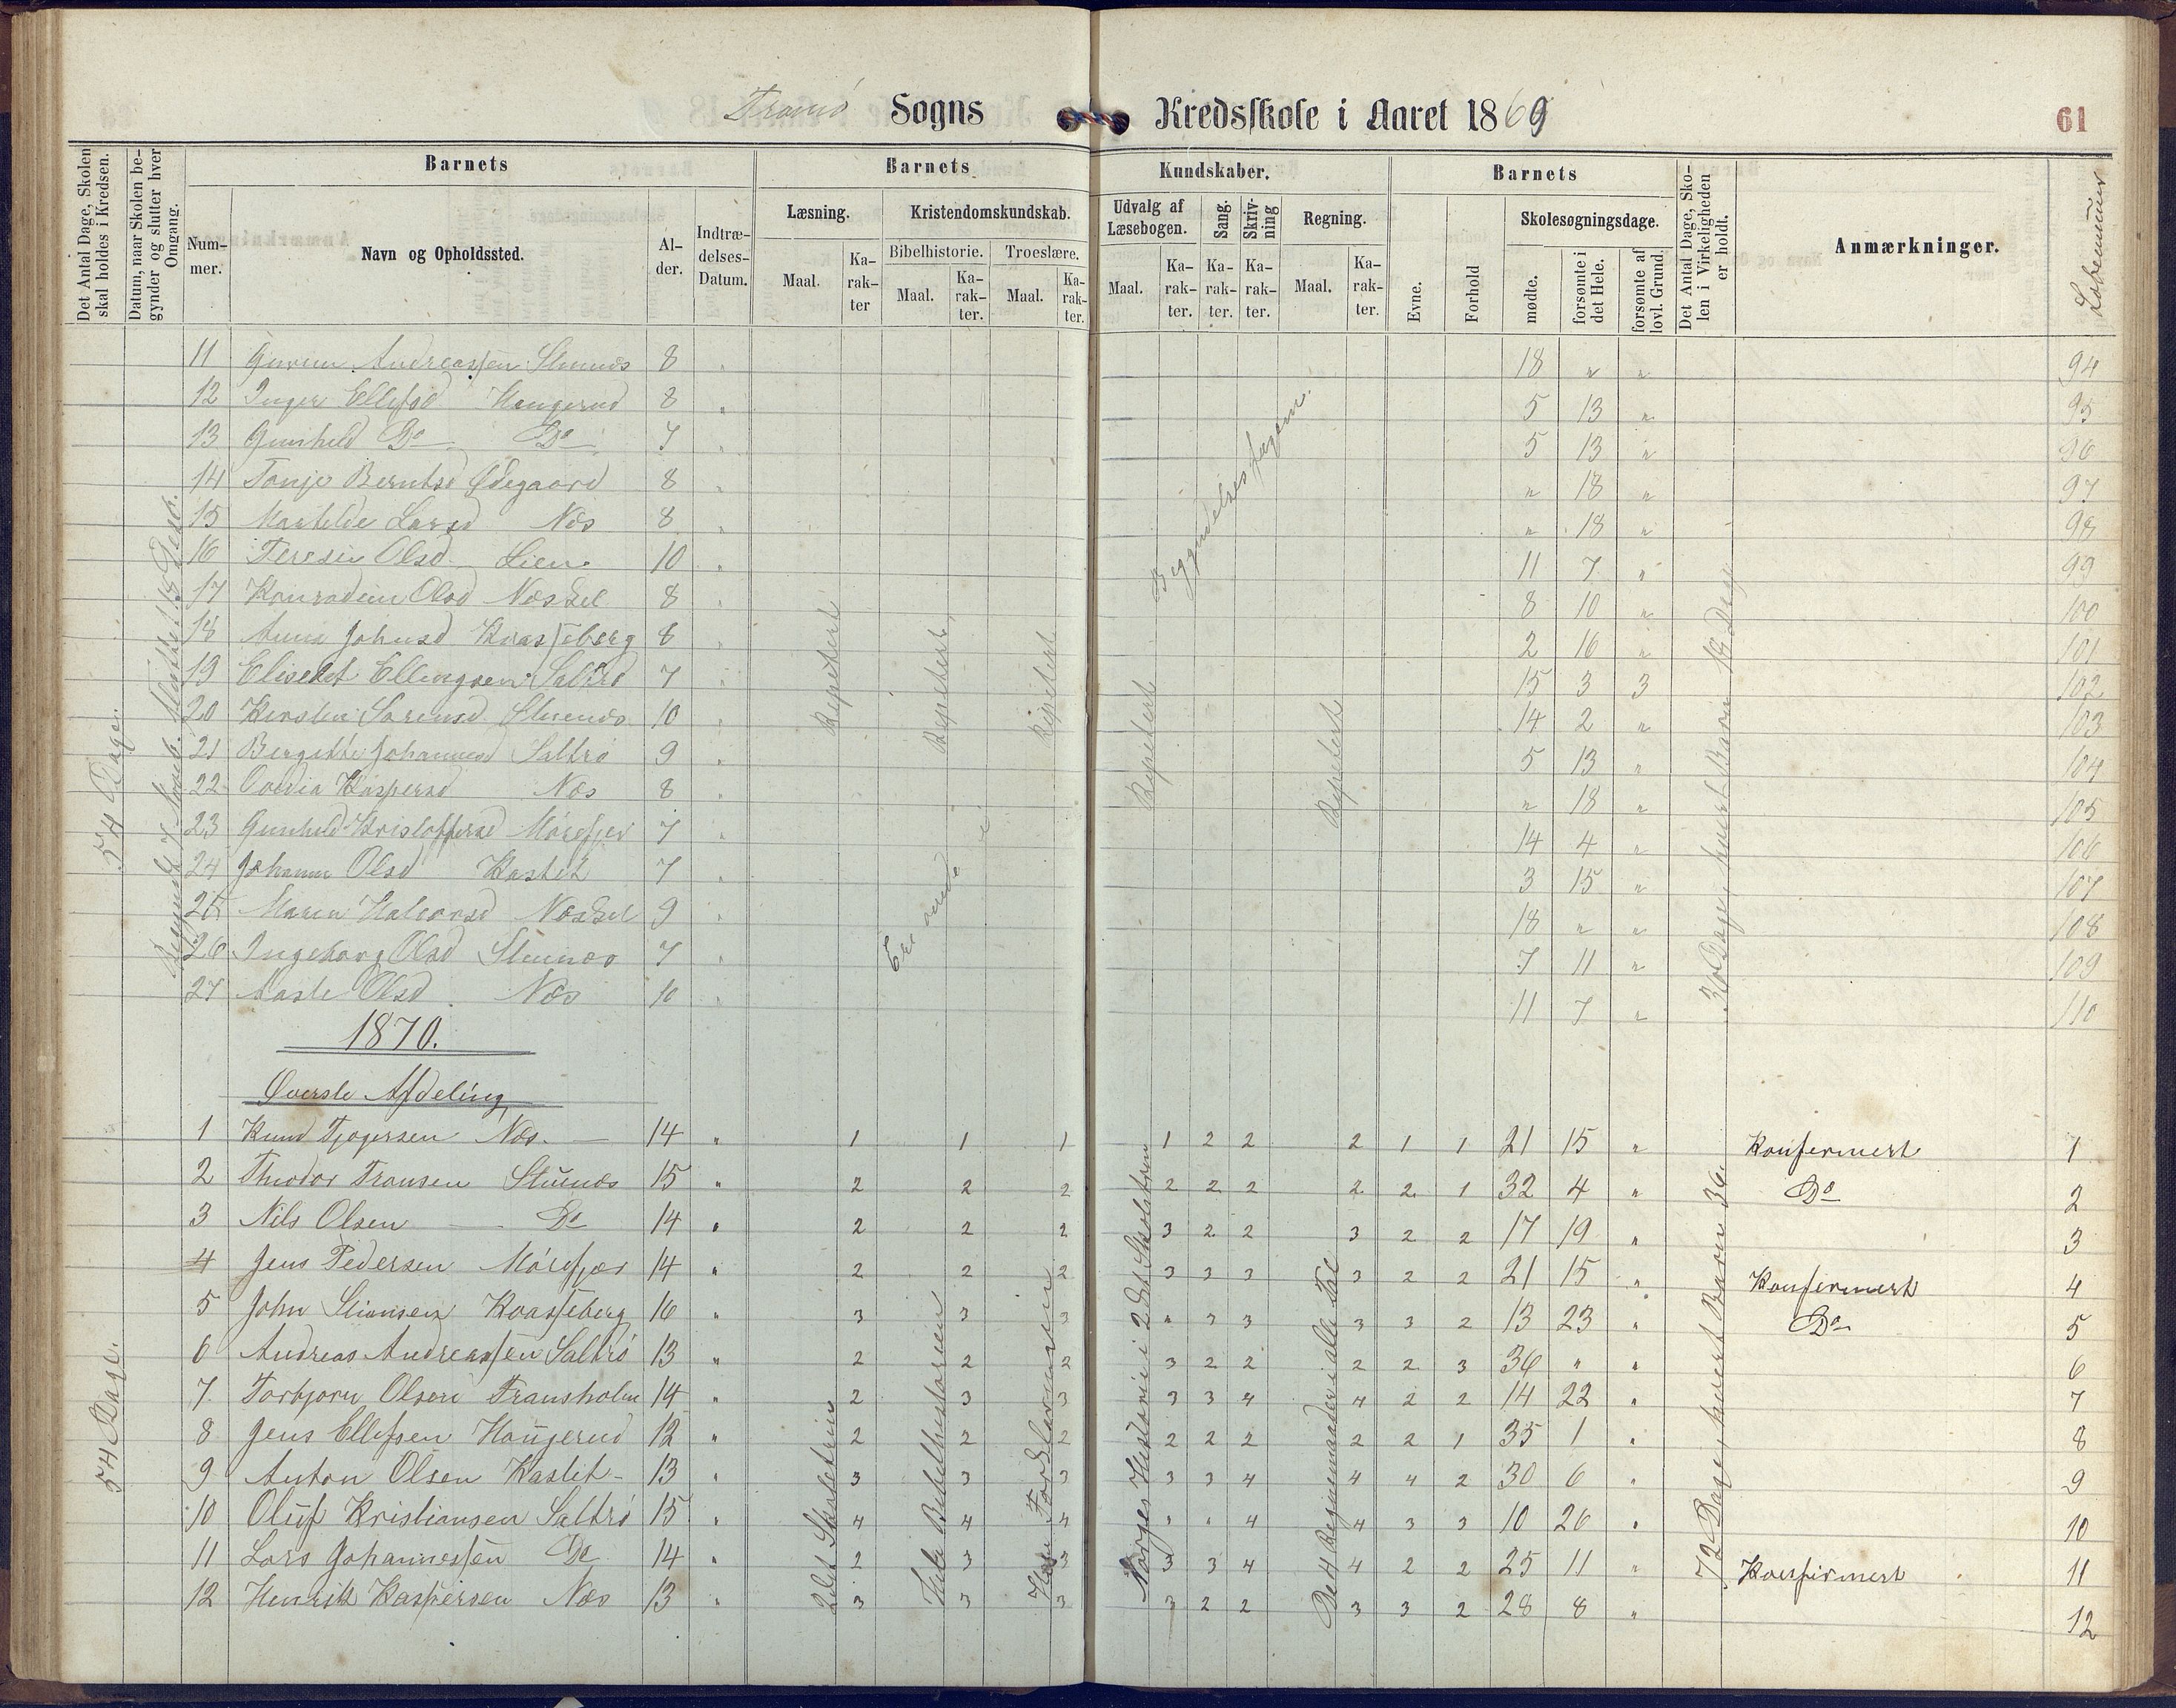 Tromö Sogns Kredsskole i Aaret 1869
61
Det Antal Dage, Skolen skal holdes i Kredsen.
Datum, naar Skolen begynder og slutter hver Omgang.
Barnets
Nummer.
Navn og Opholdssted.
Alder.
Indtrædelses-Datum.
Barnets Kundskaber.
Læsning.
Maal.
Karakter
Kristendomskundskab.
Bibelhistorie.
Maal.
Karakter.
Troeslære.
Maal.
Karakter.
Udvalg af Læsebogen.
Maal.
Karakter.
Sang.
Karakter.
Skrivning
Karakter.
Regning.
Maal.
Karakter.
Barnets
Evne.
Forhold
Skolesøgningsdage.
mødte.
forsømte i det Hele.
forsømte af lovl. Grund.
Det Antal Dage, Skolen i Virkeligheden er holdt.
Anmærkninger.
Löbenumer
54 Dage.
Repetert
Repetert
Repetert
Repetert
Repetert
Begyndelsesfagene.
36 Dage, hvert Barn 18 Dage
11 Andreassen Stuenæs 8 " 18 " " 94
12 Inger Ellefsd Haugerud 8 " 5 13 " 95
13 Gunhild Do Do 7 " 5 13 " 96
14 Tonje Berntsd Ødegaard 8 " " 18 " 97
15 Mathilde Larsd Næs 8 " " 18 " 98
16 Teresie Olsd Lien 10 " 11 7 " 99
17 Konradine Olsd Næskel 8 " 8 10 " 100
18 Anne Johnsd Kvasseberg 8 " 2 16 " 101
19 Elisebet Ellingsen Saltrö 7 " 15 3 3 102
20 Kirsten Sörensd Stuenæs 10 " 14 2 " 103
21 Bergitte Johannesd Saltrö 9 " 5 13 " 104
22 Ovedia Kaspersd Næs 8 " " 18 " 105
23 Gunhild Kristoffersd Mörefjær 7 " 14 4 " 106
24 Johanne Olsd Kastet 7 " 3 15 " 107
25 Maren Halvorsd Næskel 9 " 18 " " 108
26 Ingeborg Olsd Stuenæs 7 " 7 11 " 109
27 Aaste Olsd Næs 10 11 7 " 110
1870.
Øverste Afdeling
54 Dage.
2det Skoletrin
Hele Bibelhistorien
Hele Forklaringen
Norges Historie i 2det Skoletrin
De 4 Regnemaader i alle Tal
72 Dage, hvert Barn 36
1 Knud Tjøgersen Næs. 14 " 1 1 1 1 2 2 2 1 1 21 15 " Konfermert 1
2 Theodor Fransen Stuenæs 15 " 2 2 2 2 2 2 2 2 1 32 4 " Do 2
3 Nils Olsen Do 14 " 2 2 2 3 2 2 3 2 2 17 19 " 3
4 Jens Pedersen Mörefjær 14 " 2 2 2 3 3 3 3 2 2 21 15 " Konfermert 4
5 John Simonsen Kvasseberg 16 " 3 3 3 " 3 3 3 3 2 13 23 " Do 5
6 Andreas Andreassen Saltrö 13 " 2 2 2 3 2 2 2 2 3 36 " " 6
7. Torbjørn Olsen Fransholm 14 " 2 3 3 3 3 4 4 2 2 14 22 " 7
8 Jens Ellefsen Haugerud 12 " 2 2 2 2 2 2 2 2 1 35 1 " 8
9 Anton Olsen Kastet 13 " 3 3 3 3 3 4 4 4 2 30 6 " 9
10 Oluf Kristiansen Saltrö 15 " 4 4 4 " " 4 4 3 3 10 26 " 10
11 Lars Johannessen Do 14 " 2 3 3 3 3 4 4 2 2 25 11 " Konfirmert 11
12 Henrik Kaspersen Næs 13 " 3 3 3 3 2 2 3 3 2 28 8 " 12